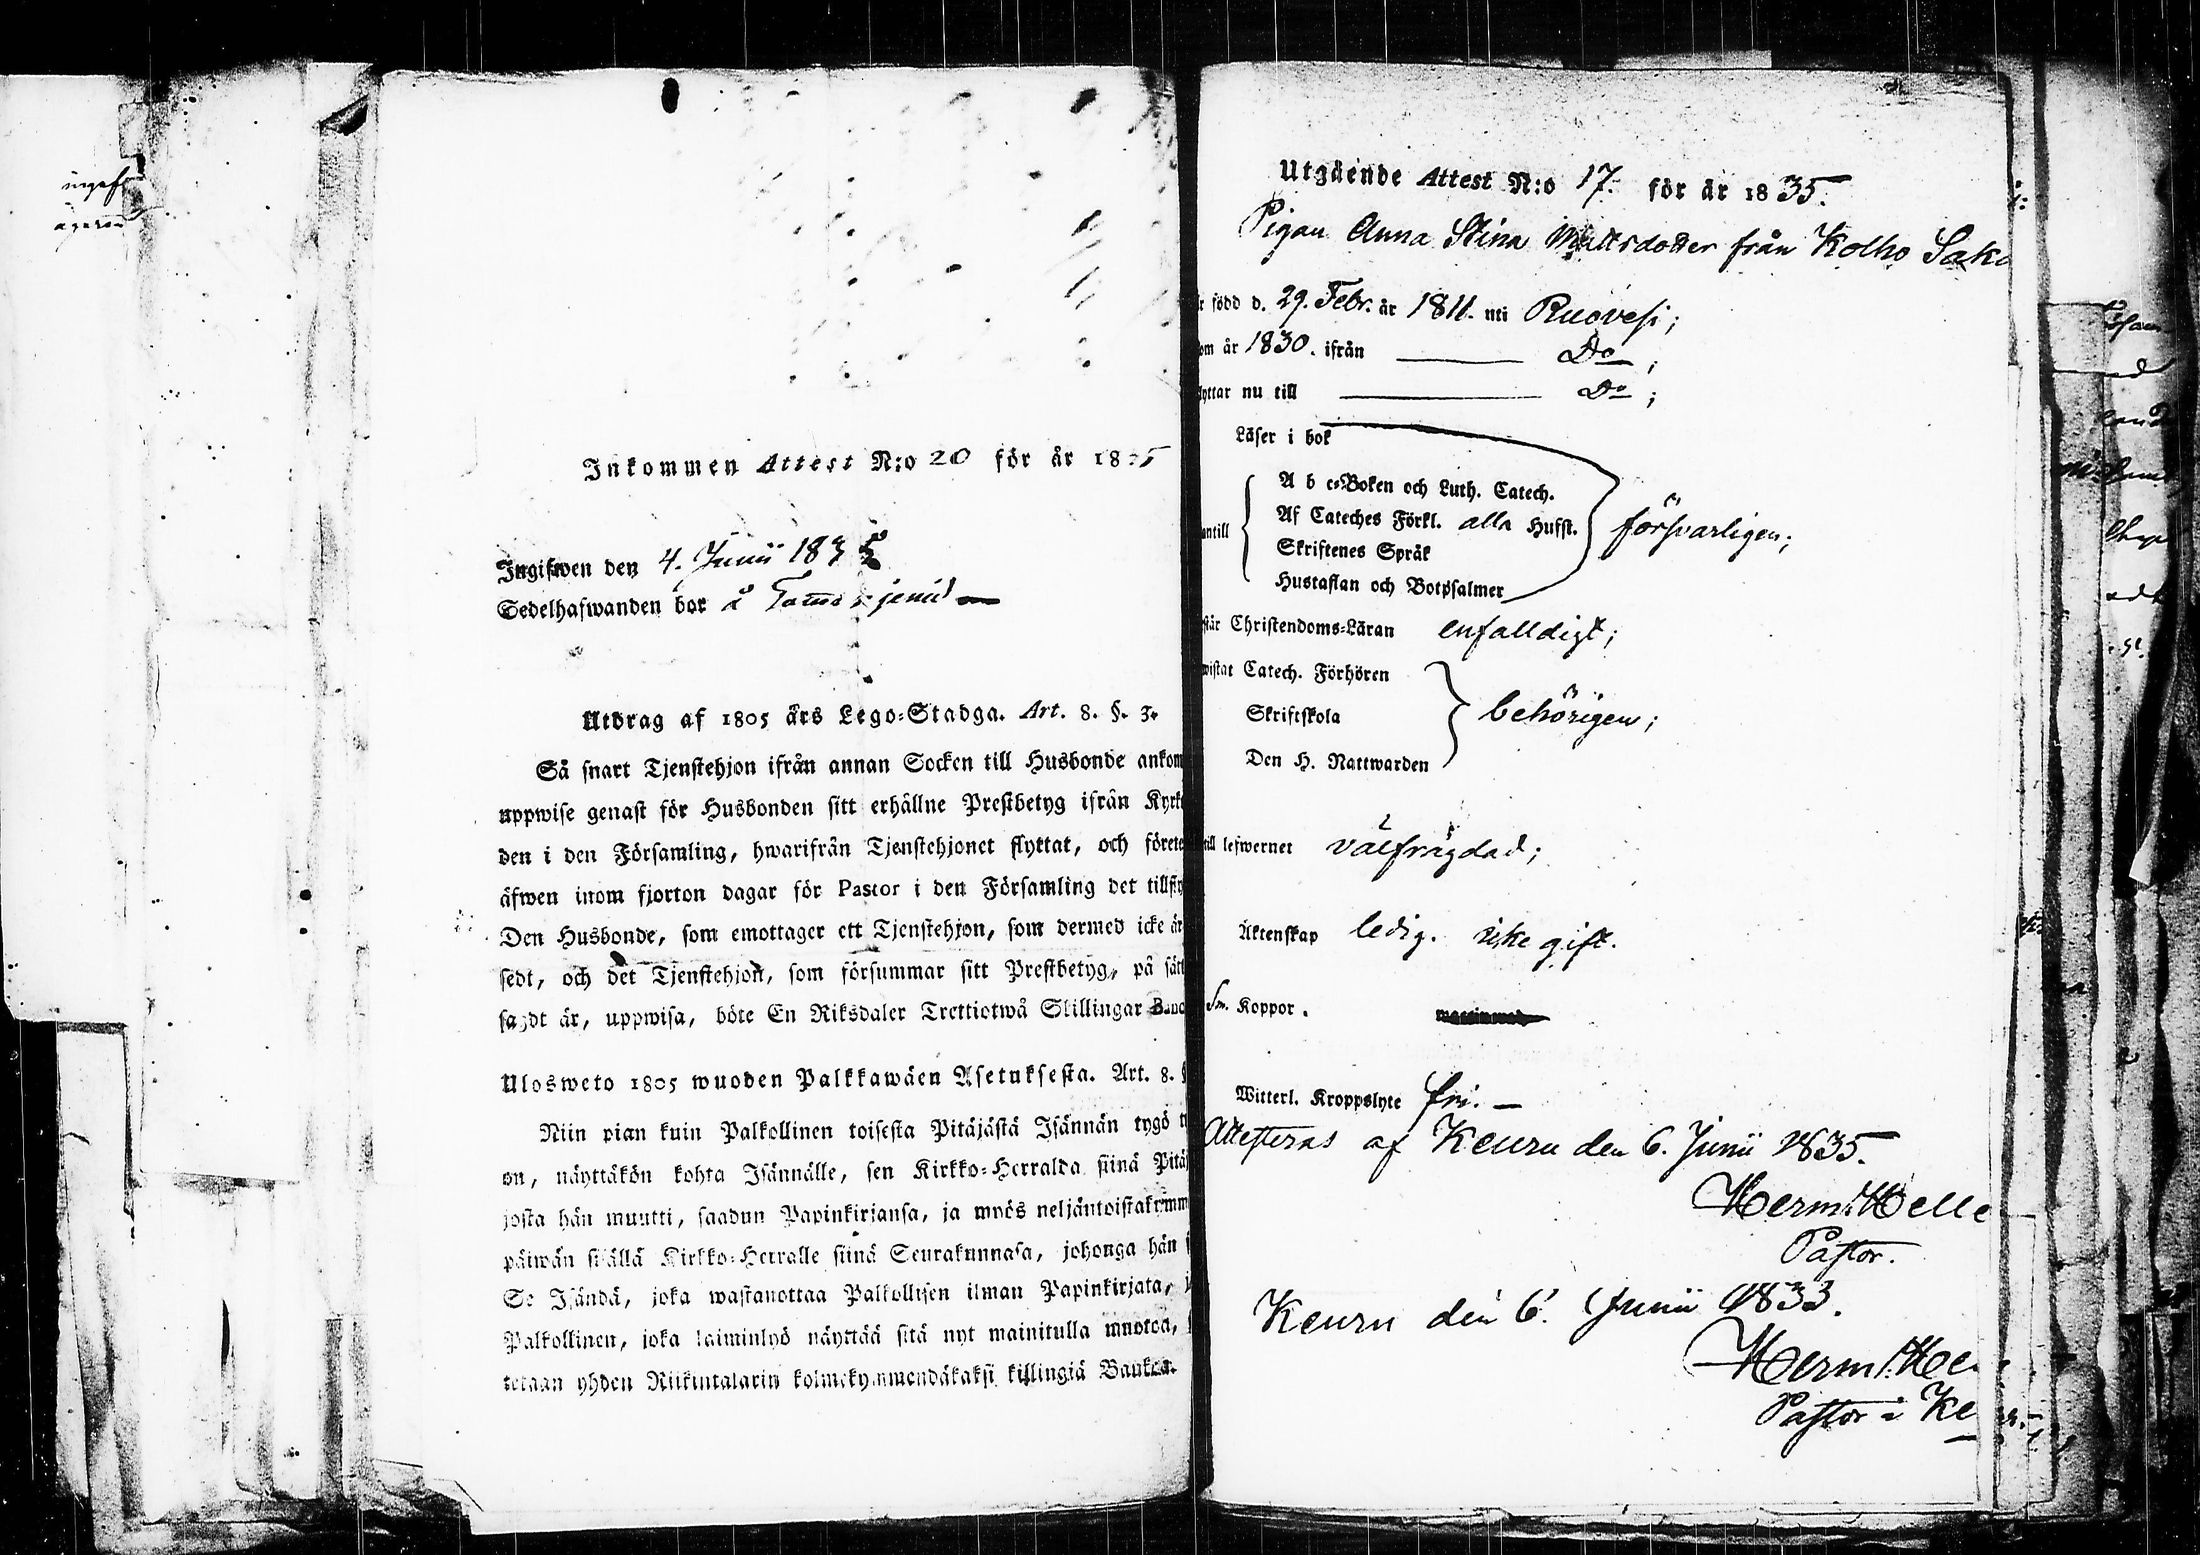 Inkommen Attest N:o 20 för år 1835
Ingifwen den 4. Junii 183
Sedelhafwanden bor å
Utdrag af 1805 års Lego-Stadga. Art. 8. §. 3.
Så snart Tjenstehjon ifrån annan Socken till Husbonde ankom
uppwise genast för Husbonden sitt erhållne Prestbetyg ifrån Kyrk
den i den Församling, hwarifrån Tjenstehjonet flyttat, och förete
äfwen inom fjorton dagar för Pastor i den Församling det tillfly
Den Husbonde, som emottager ett Tjenstehjon, som dermed icke är
sedt, och det Tjenstehjon, som försummar sitt Prestbetyg, på sätt
sagdt är, uppwisa, böte En Riksdaler Trettiotwå Skillingar Banc
Ulosweto 1805 wuoden Palkkawäen Asetuksesta. Art. 8. §
Niin pian kuin Palkollinen toisesta Pitäjästä Isännän tygö t
on, näyttäkön kohta Isännälle, sen Kirkko-Herralda siinä Pitäj
josta hän muutti, saadun Papinkirjansa, ja myös neljäntoistakymm
päiwän sisällä Kirkko-Herralle siinä Seurakunnasa, johonga hän s
Se Isändä, joka wastanottaa Palkollisen ilman Papinkirjata, j
Palkollinen, joka laiminlyö näyttää sitä nyt mainitulla muotoa,
tetaan yhden Riikintalarin kolmekymmendäkaksi killingiä Bankoa.
Utgående Attest N:o 17. för år 1835.
Pigan Anna Stina Mattsdotter från Kolho Sak
r född d. 29. Febr. år 1811. uti Ruovesi;
om år 1830. ifrån Do;
lyttar nu till Do;
Läser i bok
A b c-Boken och Luth. Catech.
antill Af Cateches Förkl. alla Husst. försvarligen;
Skriftenes Språk
Hustaflan och Botpsalmer
står Christendoms-Läran enfalldigt;
wistat Catech. Förhören
Skriftskola behörigen;
Den H. Nattwarden
till lefwernet välfrägdad;
Äktenskap ledig. icke gift.
Sm. Koppor.
Witterl. Kroppslyte fri. —
Attesteras af Keuru den 6. Junii 1835.
Herm. Helle
Pastor.
Keuru den 6. Junii 1833.
Herm. He
Pastor i Ke